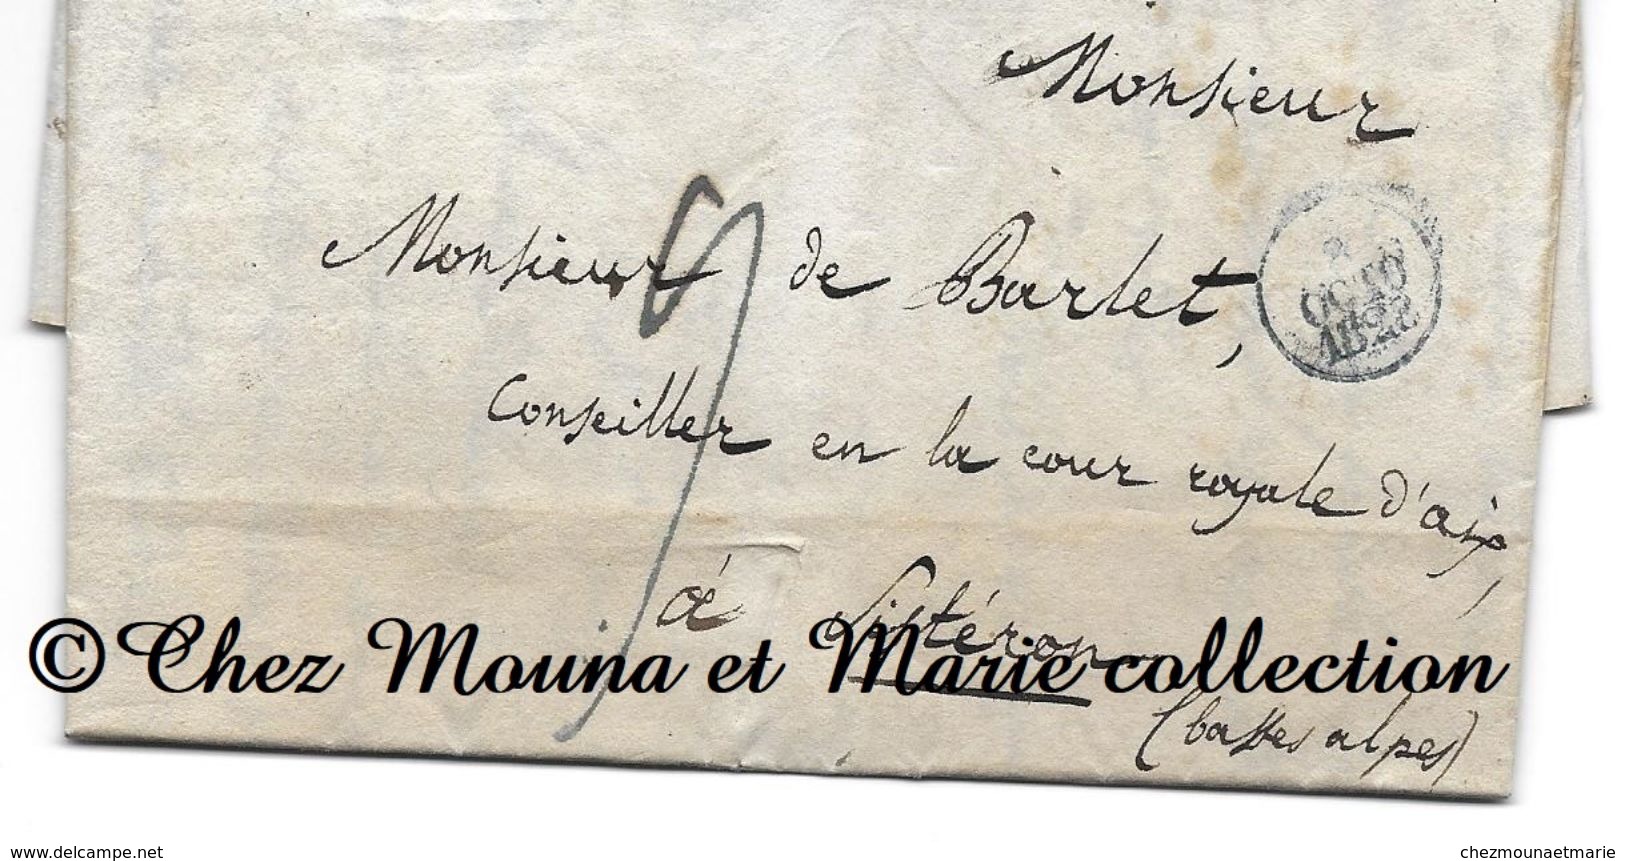 Monsieur
Monsieur de Barlet,
Conseiller en la cour royale d'aix,
à Sistéron
(basses alpes)
©Chez Mouna et Marie collection
www.delcampe.net
chezmounaetmarie